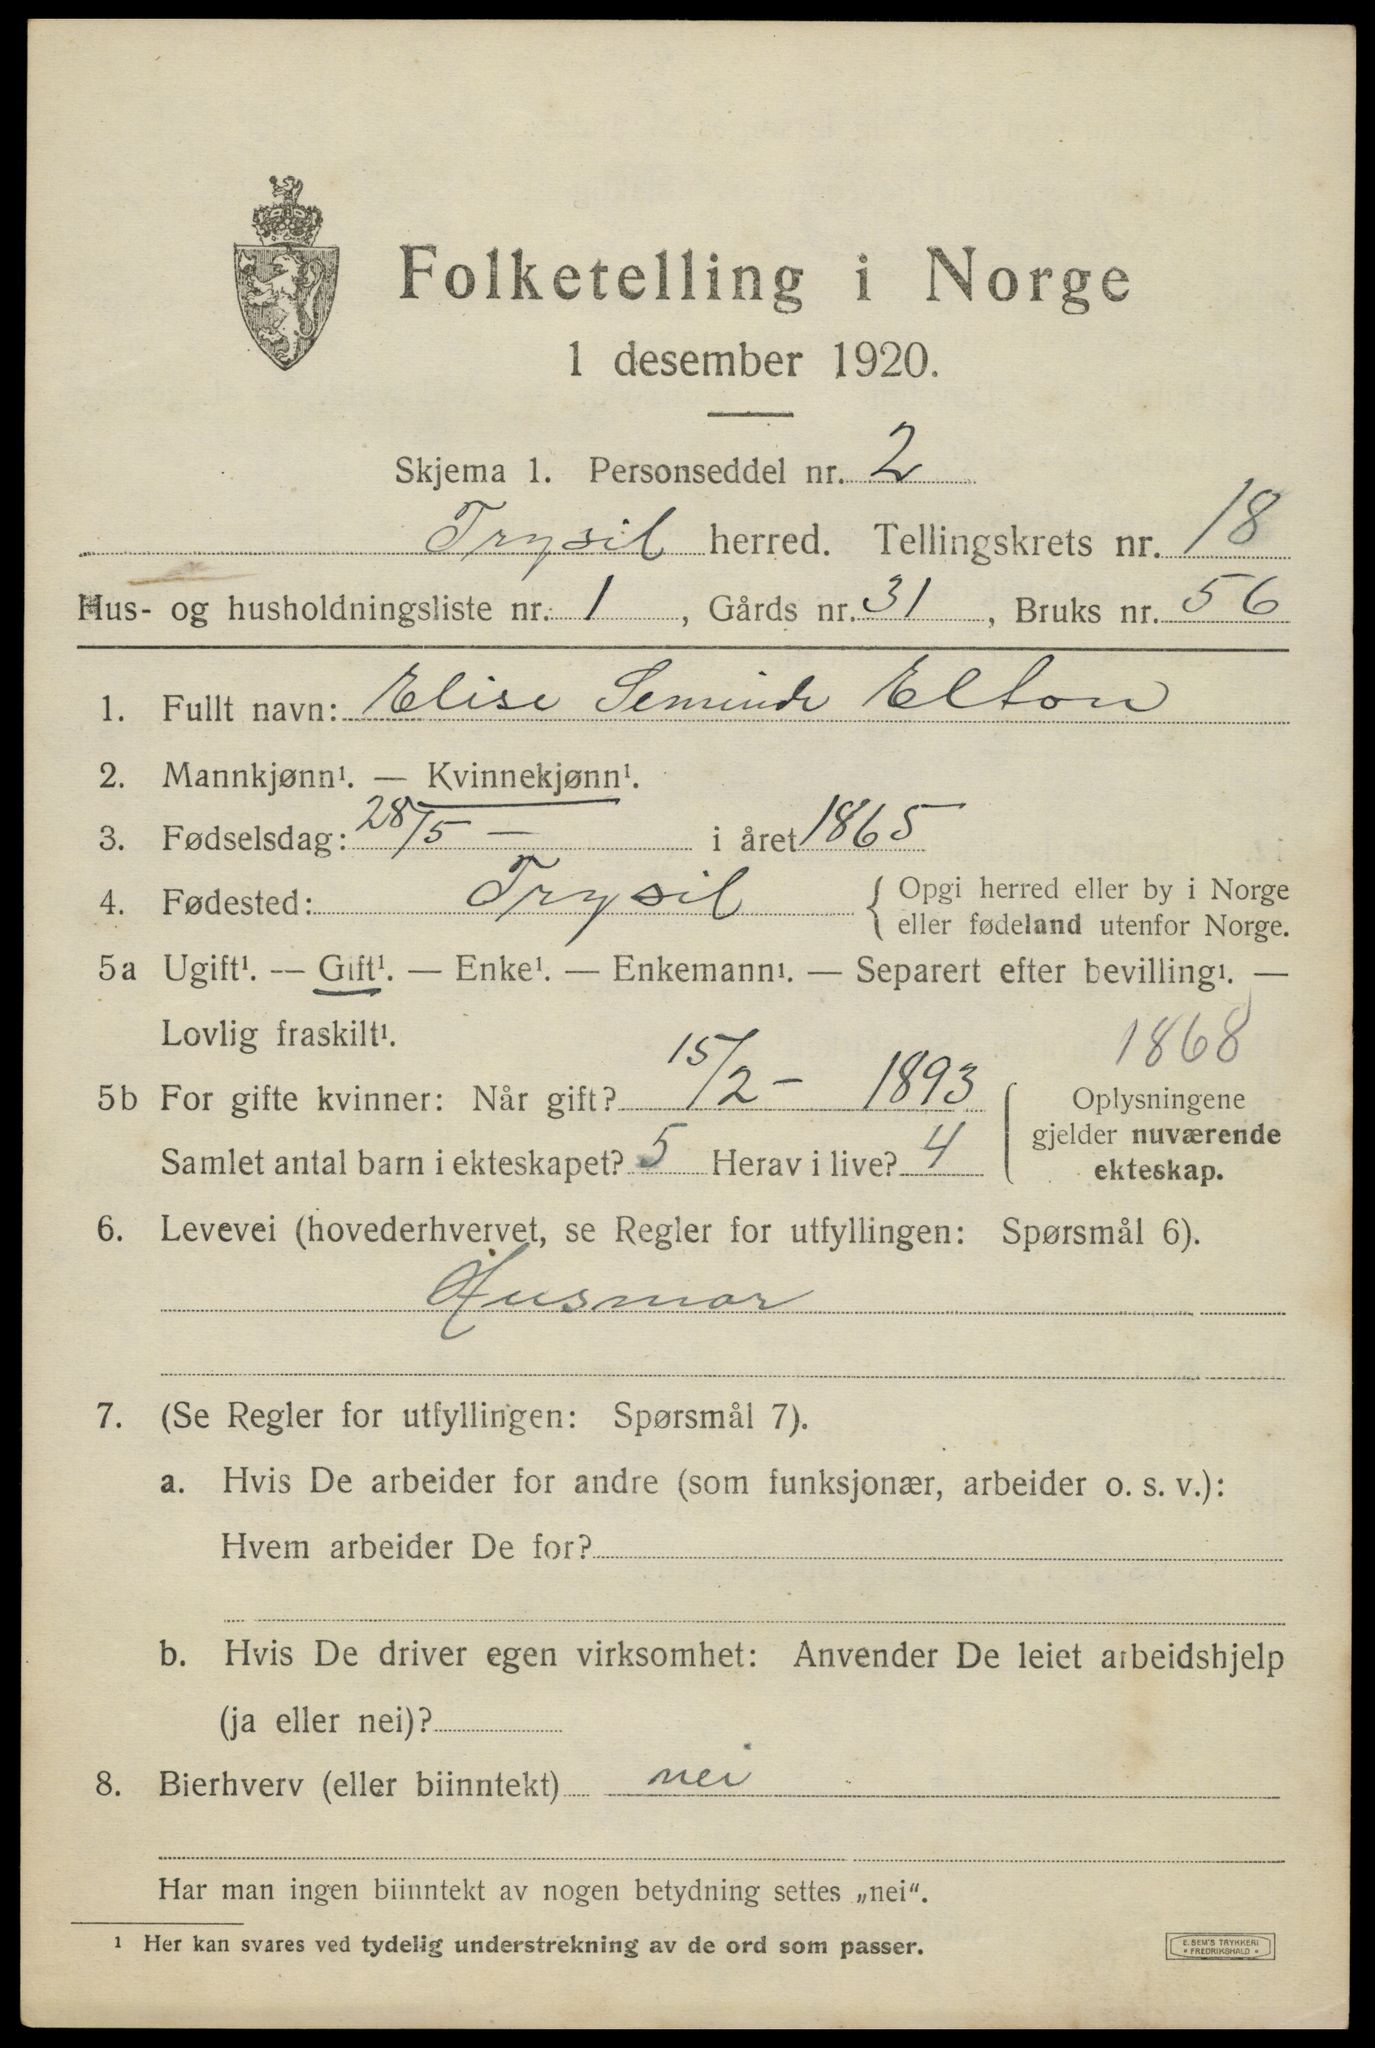 Folketelling i Norge
1 desember 1920.
Skjema 1. Personseddel nr. 2
Trysil herred. Tellingskrets nr. 18
Hus- og husholdningsliste nr. 1, Gårds nr. 31, Bruks nr. 56
1. Fullt navn: Elise Elton
2. Mannkjønn¹. — Kvinnekjønn¹.
3. Fødselsdag: 28/5 — i året 1865
4. Fødested: Trysil { Opgi herred eller by i Norge
eller fødeland utenfor Norge.
5a Ugift¹. — Gift¹. — Enke¹. — Enkemann¹. — Separert efter bevilling¹. —
Lovlig fraskilt¹.
1868
5b For gifte kvinner: Når gift? 15/2 - 1893
Samlet antal barn i ekteskapet? 5 Herav i live? 4
Oplysningene
gjelder nuværende
ekteskap.
6. Levevei (hovederhvervet, se Regler for utfyllingen: Spørsmål 6).
Husmor
7. (Se Regler for utfyllingen: Spørsmål 7).
a. Hvis De arbeider for andre (som funksjonær, arbeider o. s. v.):
Hvem arbeider De for?
b. Hvis De driver egen virksomhet: Anvender De leiet arbeidshjelp
(ja eller nei)?
8. Bierhverv (eller biinntekt) nei
Har man ingen biinntekt av nogen betydning settes „nei“.
¹ Her kan svares ved tydelig understrekning av de ord som passer.
E. SEM'S TRYKKERI
* FREDRIKSHALD *